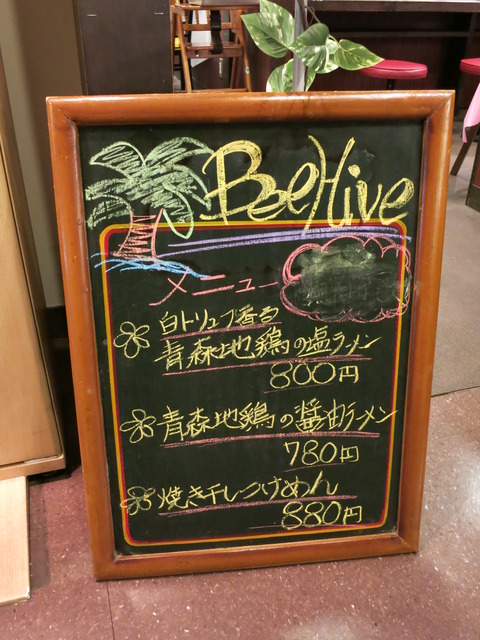 BeeHive
メニュー
白トリュフ香る
青森地鶏の塩ラーメン
800円
青森地鶏の醤油ラーメン
780円
焼き干しつけめん
880円